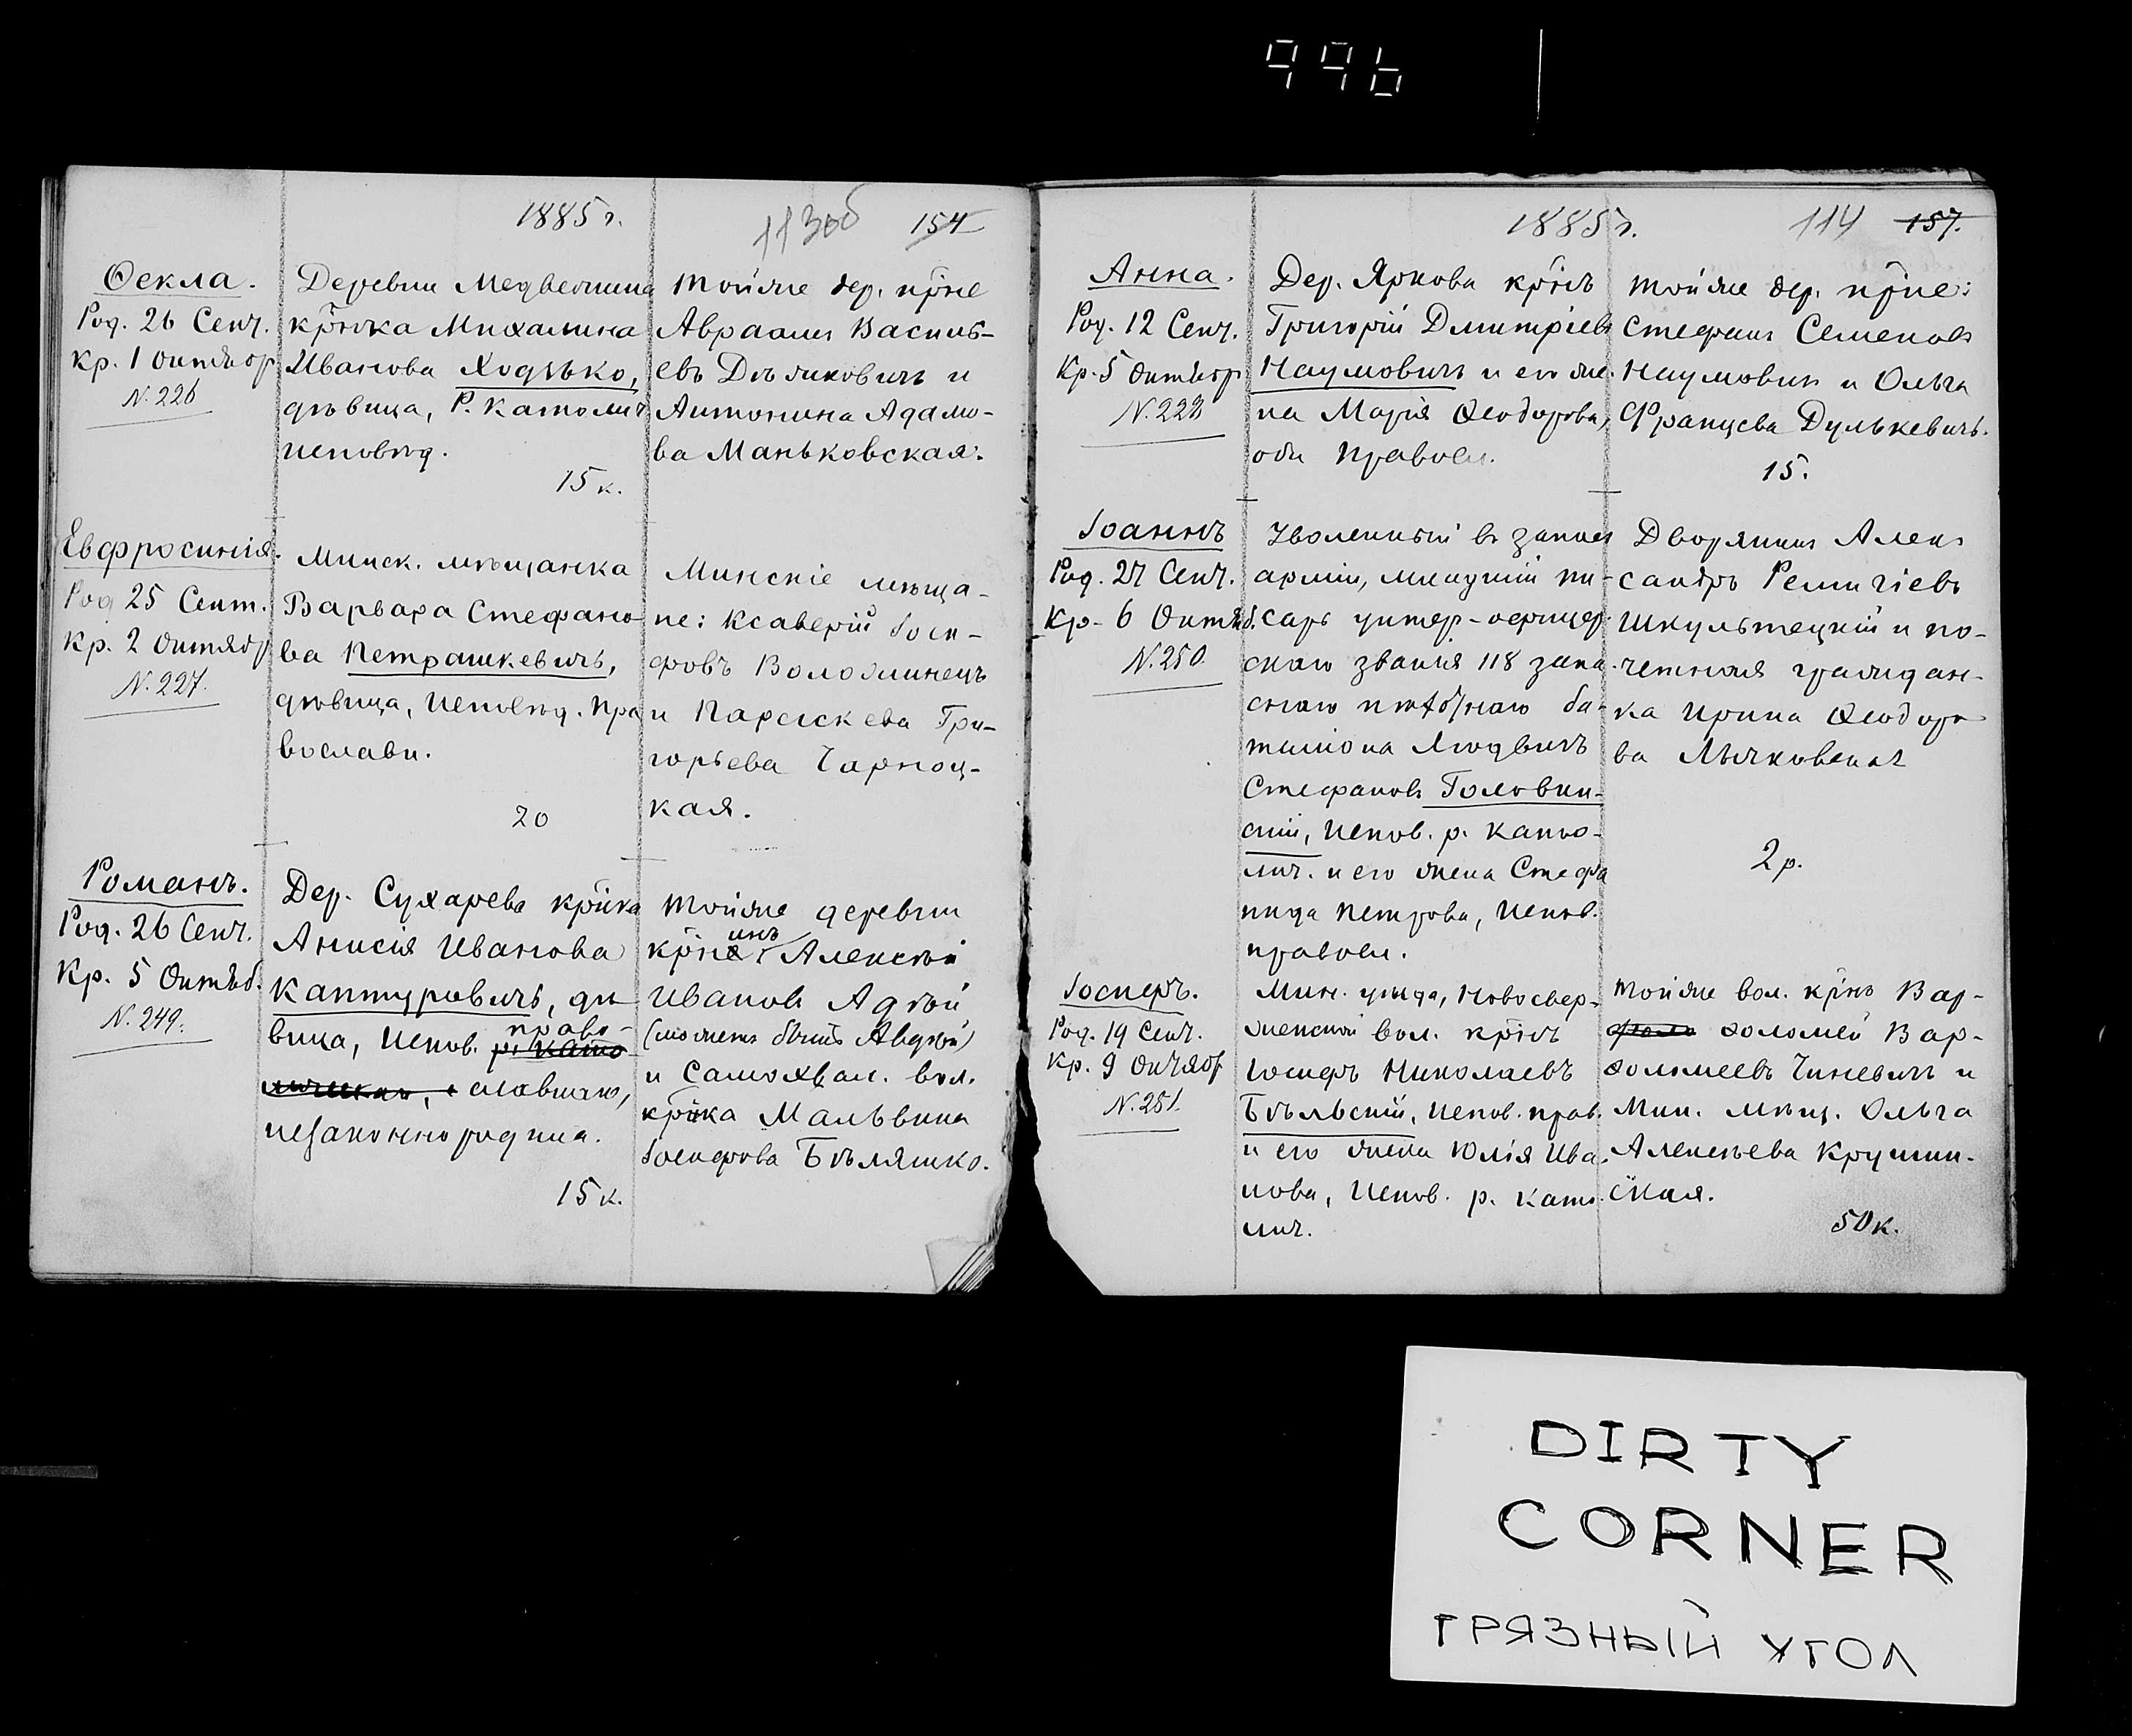 996
1885 г.
113об 154
Ѳекла.
Род. 26 Сент.
кр. 1 Октябр
N. 226
Деревни Медвежина
кр̃нка Михалина
Иванова Ходзько,
дѣвица, Р. Католич
исповѣд.
15 к.
тойже дер. кр̃не
Авраамъ Василь-
евъ Дѣжковичъ и
Антонина Адамо-
ва Маньковская.
Евфросинія.
Род 25 Сент.
кр. 2 Октябр
N. 227.
Минск. мѣщанка
Варвара Стефано
ва Петрашкевичъ,
дѣвица, исповѣд. пра
вославн.
20
Минскіе мѣща-
не: Ксаверій Іоси-
фовъ Воложинецъ
и Параскева Гри-
горьева Чарноц-
кая.
Романъ.
Род. 26 Сент.
Кр. 5 Октяб.
N. 249.
Дер. Сухарева кр̃нка
Анисія Иванова
Каптуровичъ, дѣ
вица, испов. р. като
право-
личискаго, славнаго,
незаконнородила.
15 к.
тойже деревни
кр̃не Алексѣй
инъ
Ивановъ Адѣй
(можетъ быть Авдѣй)
и Самохвал. вол.
кр̃нка Мальвина
Іосифова Бѣляшко.
1885 г.
114 157.
Анна.
Род. 12 Сент.
Кр. 5 Октябр
N. 228
Дер. Яркова кр̃нъ
Григорій Дмитріевъ
Наумовичъ и его же-
на Марія Ѳеодорова,
оба правосл.
тойже дер. кр̃не:
Стефанъ Семеновъ
Наумовичъ и Ольга
Францева Дулькевичъ.
15.
Іоаннъ
Род. 27 Сент.
Кр. 6 Октяб.
N. 250.
Уволенный въ запас
арміи, младшій пи-
сарь унтер-офицер
скаго званія 118 запа-
снаго пѣхотнаго ба-
таліона Людвигъ
Стефановъ Головин-
скій, испов. р. като-
лич. и его жена Стефа
нида Петрова, испов.
правосл.
Дворянинъ Алек-
сандръ Ремигіевъ
Шкультецкій и по-
четная граждан-
ка Ирина Ѳеодоро
ва Лычковская
2 р.
Іосифъ.
Род. 19 Сент.
Кр. 9 Октябр
N. 251.
Мин. уѣзда, Новосвер-
женской вол. кр̃нъ
Іосифъ Николаевъ
Бѣльскій, испов. прав.
и его жена Юлія Ива-
нова, испов. р. като-
лич.
тойже вол. кр̃нъ Вар-
ѳоломей Вар-
ѳоломеевъ Чиневичъ и
Мин. мѣщ. Ольга
Алексѣева Крушин-
ская.
50 к.
DIRTY
CORNER
ГРЯЗНЫЙ УГОЛ